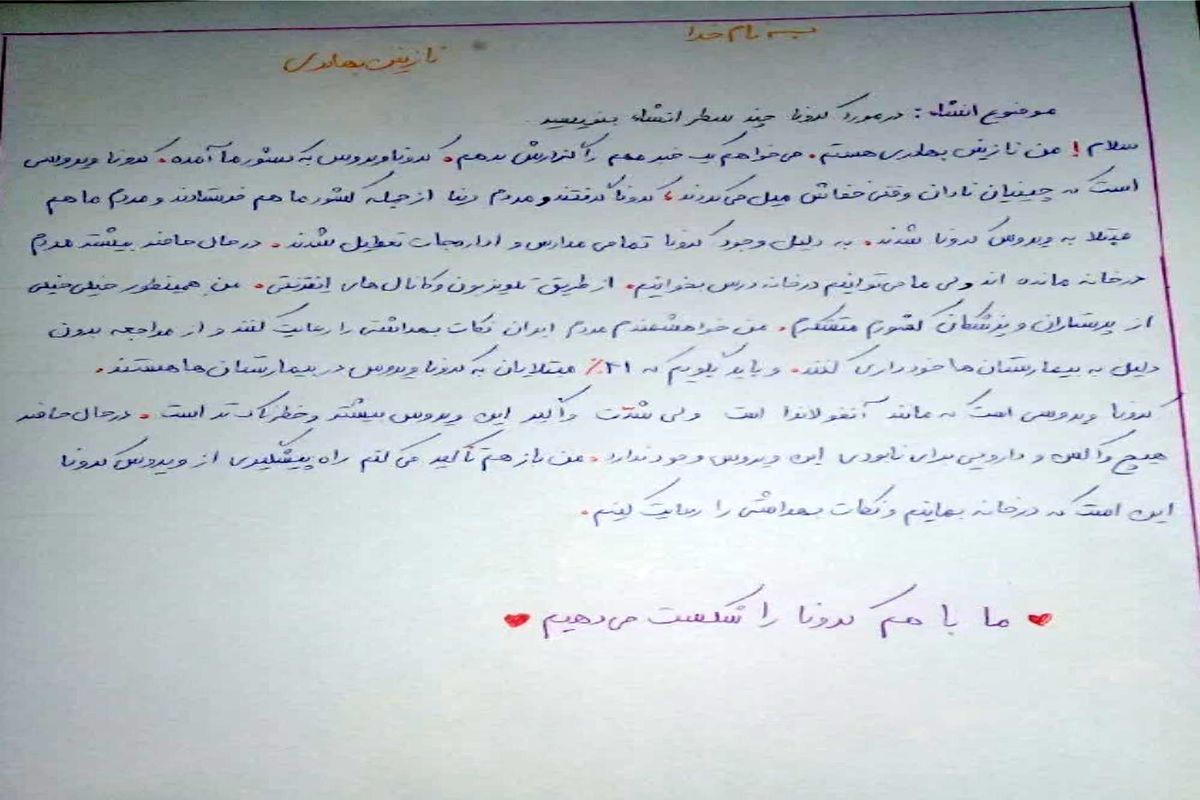 به نام خدا
نازنین بهادری
موضوع انشاء: در مورد کرونا چند سطر انشاء بنویسید
سلام! من نازنین بهادری هستم. می‌خواهم یک خبر مهم را گزارش بدهم. کرونا ویروس به کشور ما آمده. کرونا ویروسی
است که چینیان نادان وقتی خفاش میل می‌کردند، کرونا گرفتند و مردم دنیا از جمله کشور ما هم فرستادند و مردم ما هم
مبتلا به ویروس کرونا شدند. به دلیل وجود کرونا تمامی مدارس و ادارجات تعطیل شدند. در حال حاضر بیشتر مردم
در خانه مانده اند ولی ما می‌توانیم در خانه درس بخوانیم. از طریق تلویزیون و کانال های اینترنتی. من همینطور خیلی خیلی
از پرستاران و پزشکان کشورم متشکرم. من خواهشمندم مردم ایران نکات بهداشتی را رعایت کنند و از مراجعه بدون
دلیل به بیمارستان ها خودداری کنند. و باید بگویم که ۲۱٪ مبتلایان به کرونا ویروس در بیمارستان ها هستند.
کرونا ویروسی است که مانند آنفولانزا است ولی شدّت واگیر این ویروس بیشتر و خطرناک تر است. در حال حاضر
هیچ واکسن و دارویی برای نابودی این ویروس وجود ندارد. من باز هم تأکید می کنم راه پیشگیری از ویروس کرونا
این است که در خانه بمانیم و نکات بهداشتی را رعایت کنیم.
♥ ما با هم کرونا را شکست می‌دهیم ♥